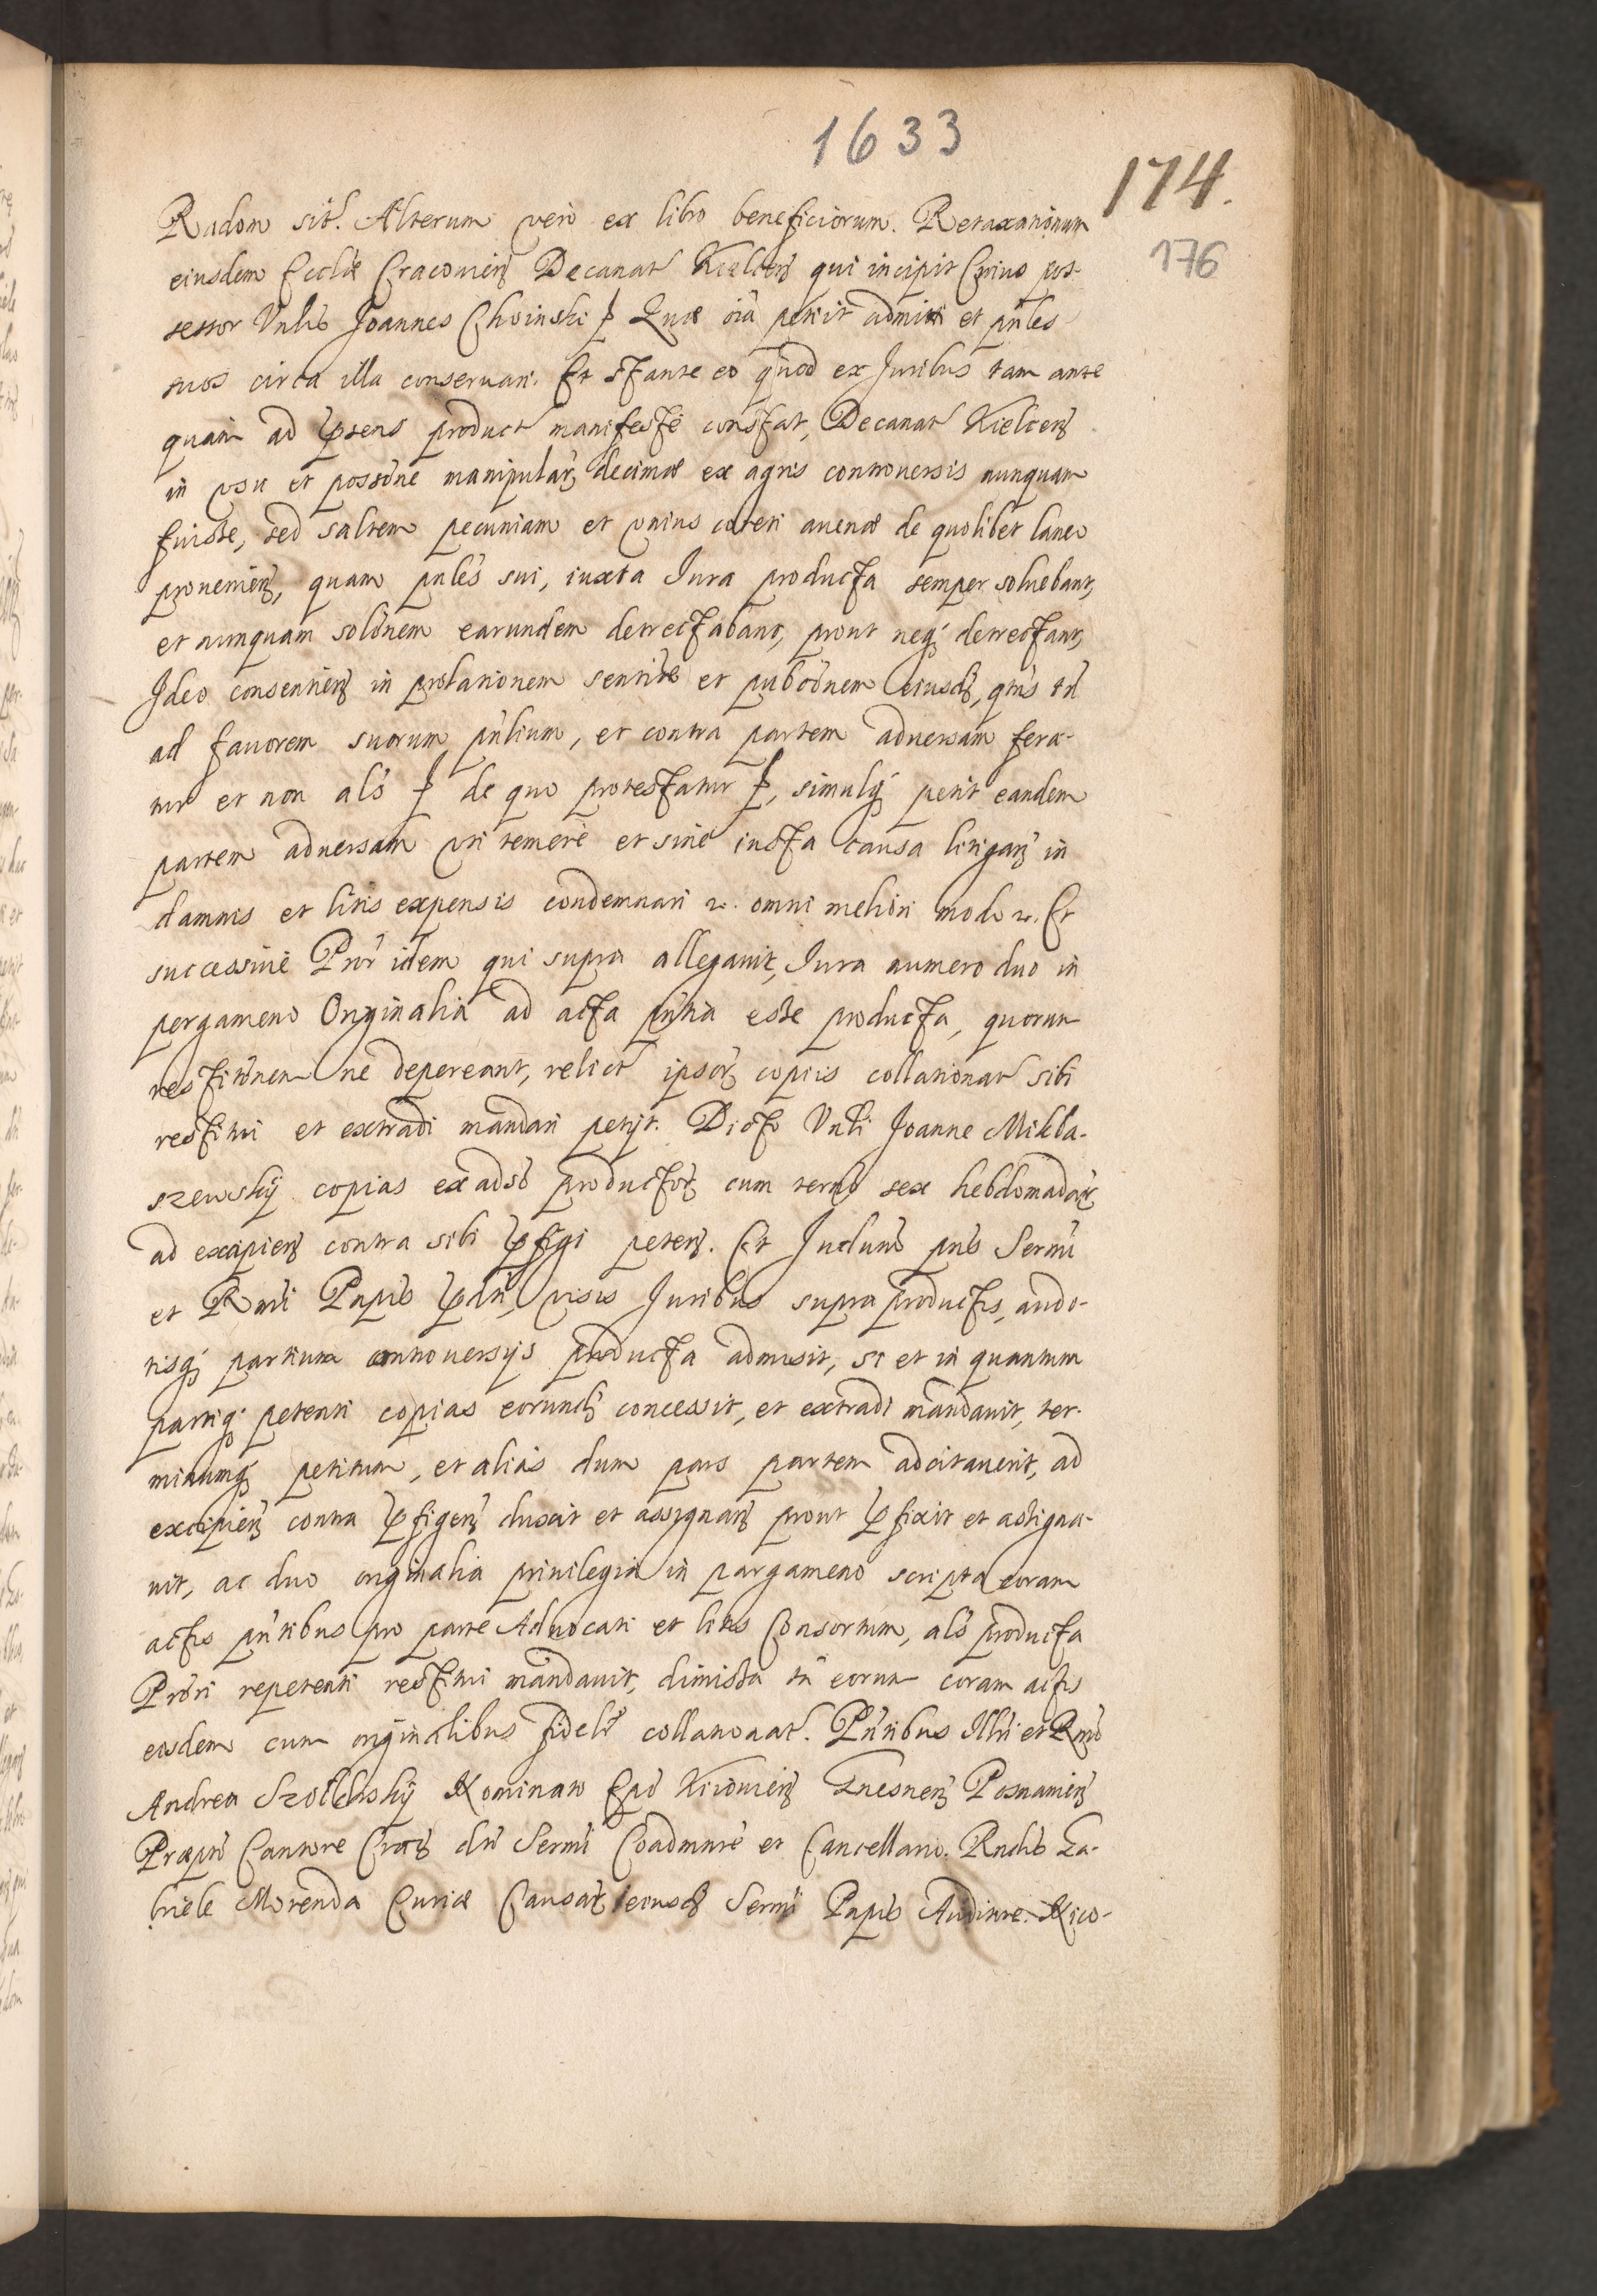 1633
174.
176
Radom sit. Alterum vero ex libro beneficiorum. Retaxationum
eiusdem Eccliæ Cracouien Decanat Kielcen qui incipit Cuius pos-
sessor Vnlis Joannes Choinski Quæ oia petiit admitti et pnles
suos circa illa conseruari. Et stante eo quod ex Juribus tam ante
quam ad præsens product manifeste constat, Decanat Kielcen
in vsu et possone manipular decimæ ex agris controuersis nunquam
fuisse, sed saltem pecuniam et vnius coreti auenæ de quolibet laneo
prouenien, quam pnles sui, iuxta Jura producta semper soluebant,
et nunquam solonem earundem detrectabant, prout neq detrectant,
Ideo consentien in prolationem sentiæ et pubconem eiusd, qtus tn
ad fauorem suorum pnlium, et contra partem aduersam fera-
tur et non als de quo protestatur, simulq petit eandem
partem aduersam vti temere et sine iusta causa litigan in
damnis et litis expensis condemnari etc. omni meliori modo etc. Et
successiue Pror idem qui supra allegauit, Jura numero duo in
pergameno Originalia ad acta pntia esse producta, quorum
restitonem ne depereant, relict ipsor copiis collationat sibi
restitui et extradi mandari petijt. Dicto Vnli Joanne Mikla-
szewskij copias ex adso productor cum termo sex hebdomadar
ad excipien contra sibi præfigi peten. Et Judum pns Sermi
et Rmdi Papis pdti, visis Juribus supra productis, audi-
tisq partium controuersijs producta admisit, si et in quantum
partiq petenti copias eorund concessit, et extradi mandauit, ter-
minumq petitum, et alias dum pars partem adcitauerit, ad
excipien contra præfigen duxit et assignan prout præfixit et assigna-
uit, ac duo originalia priuilegia in pargameno scripta coram
actis pntibus pro parte Aduocati et litis Consortum, als producta
Prori repetenti restitui mandauit, dimissa tn eorum coram actis
eisdem cum originalibus fidelr collationat. Pntibus Illri et Rmo
Andrea Szołdrskij Nominato Epo Kiiouien Gnesnen Posnanien
Præpto Cantore Crac dti Sermi Coadmtre et Cancellario. Rndis Ga-
briele Morenda Curiæ Causar eiusd Sermi Papis Auditore. Nico-